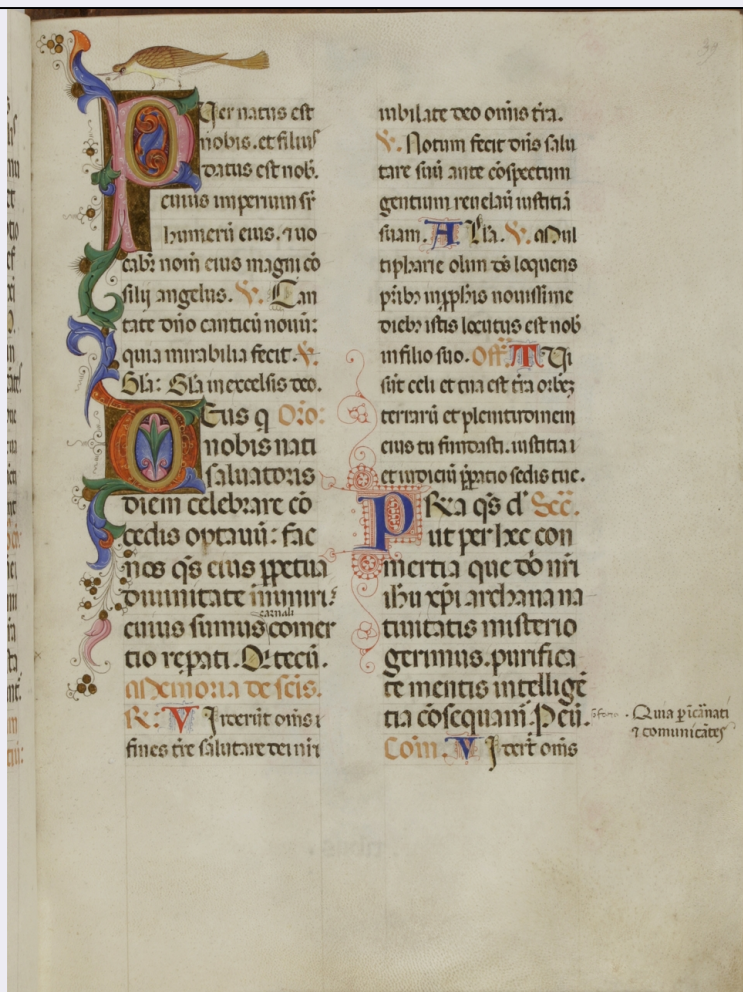 39
Puer natus est
nobis. et filius
datus est nob̄.
cuius imperium sr̄
humerū eius. ⁊ uo
cabr̄ nom̄ eius magni cō
silij angelus. V. Can
tate dño canticū nouū:
quia mirabilia fecit. V.
Gła: Gła in excelsis deo.
Deus q Orō:
nobis nati
saluatoris
diem celebrare cō
cedis optauū: fac
nos q̄s eius ꝑpetua
diuinitate muniri:
carnali
cuius sumus comer
tio reꝑati. Q tecū.
Memoria de sc̄is.
R: Viderūt om̄s
fines tr̄e salutare dei nr̄i
iubilate deo om̄is tr̄a.
V. Notum fecit dn̄s salu
tare suū ante cōspectum
gentium reuelauı iustitiā
suam. Alła. V. Mul
tipharie olim ds̄ loquens
pr̄ibꝫ in ꝓphis nouissime
diebꝫ istis locutus est nob̄
in filio suo. Off. Tui
sūt celi et tua est tr̄a orbeꝫ
terrarū et plenitudinem
eius tu fundasti. iustitia ı
et iudiciū p̄ꝑatio sedis tue.
Pr̄a q̄s d' Sec̄.
ut per hec con
mertia que dō nr̄i
ihū xp̄i archana na
tiuitatis misterio
gerimus. purifica
te mentis intelligē
tia cōsequam̄. P eū.
Quia ꝑ icānati
⁊ comunicātes
Com̄. Viderūt om̄s